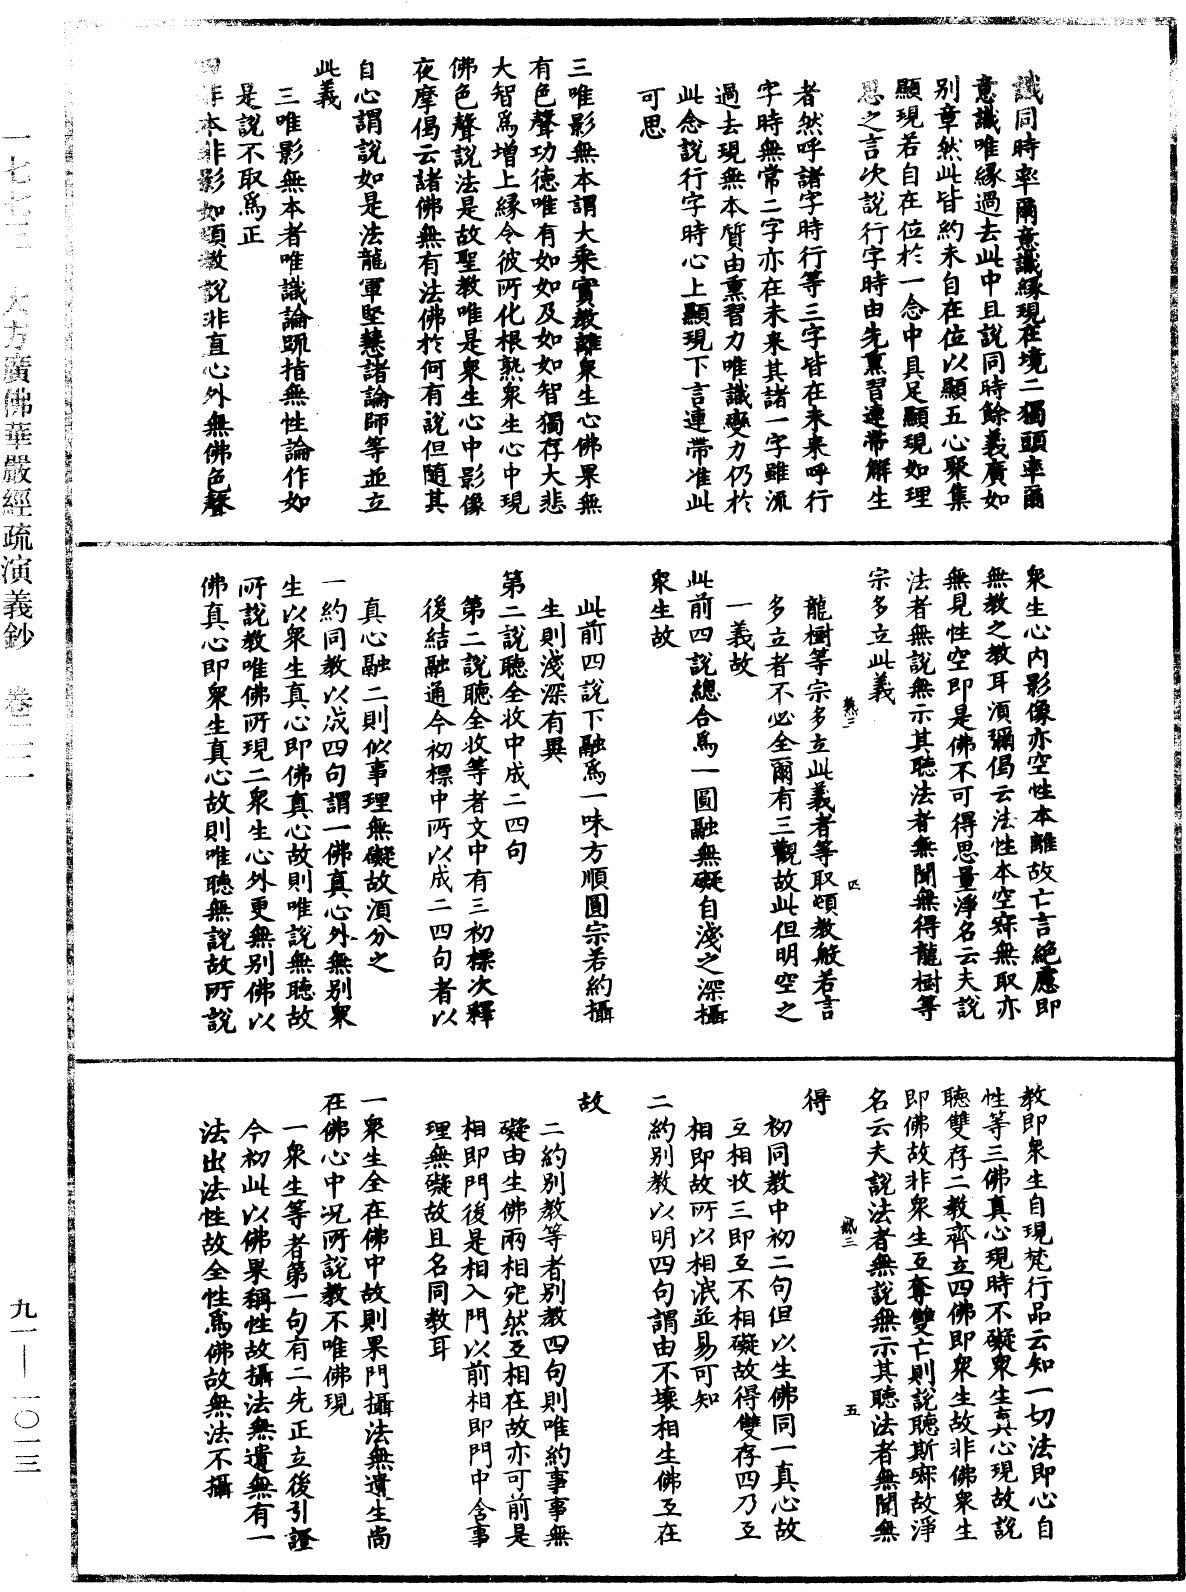 識同時率爾意識緣現在境二獨頭率爾
意識唯緣過去此中且說同時餘義廣如
別章然此皆約未自在位以顯五心聚集
顯現若自在位於一念中具足顯現如理
思之言次說行字時由先熏習連帶解生
者然呼諸字時行等三字皆在未來呼行
字時無常二字亦在未來其諸一字雖流
過去現無本質由熏習力唯識變力仍於
此念說行字時心上顯現下言連帶准此
可思
三唯影無本謂大乘實教離衆生心佛果無
有色聲功德唯有如如及如如智獨存大悲
大智爲增上緣令彼所化根熟衆生心中現
佛色聲說法是故聖教唯是衆生心中影像
夜摩偈云諸佛無有法佛於何有說但隨其
自心謂說如是法龍軍堅慧諸論師等並立
此義
三唯影無本者唯識論䟽指無性論作如
是說不取爲正
四非本非影如頓教說非直心外無佛色聲
衆生心內影像亦空性本離故亡言絕慮即
無教之教耳須彌偈云法性本空寂無取亦
無見性空即是佛不可得思量淨名云夫說
法者無說無示其聽法者無聞無得龍樹等
宗多立此義
龍樹等宗多立此義者等取頌教般若言
多立者不必全爾有三觀故此但明空之
一義故
此前四說總合爲一圓融無礙自淺之深攝
衆生故
此前四說下融爲一味方順圓宗若約攝
生則淺深有異
第二說聽全收中成二四句
第二說聽全收等者文中有三初標次釋
後結融通今初標中所以成二四句者以
真心融二則似事理無礙故須分之
一約同教以成四句謂一佛真心外無別衆
生以衆生真心即佛真心故則唯說無聽故
所說教唯佛所現二衆生心外更無別佛以
佛真心即衆生真心故則唯聽無說故所說
教即衆生自現梵行品云知一切法即心自
性等三佛真心現時不礙衆生真心現故說
聽雙存二教齊立四佛即衆生故非佛衆生
即佛故非衆生互奪雙亡則說聽斯寂故淨
名云夫說法者無說無示其聽法者無聞無
得
初同教中初二句但以生佛同一真心故
互相收三即互不相礙故得雙存四乃互
相即故所以相泯並易可知
二約別教以明四句謂由不壞相生佛互在
故
二約別教等者別教四句則唯約事事無
礙由生佛兩相宛然互相在故亦可前是
相即門後是相入門以前相即門中含事
理無礙故且名同教耳
一衆生全在佛中故則果門攝法無遺生尚
在佛心中況所說教不唯佛現
一衆生等者第一句有二先正立後引證
今初此以佛果稱性故攝法無遺無有一
法出法性故全性爲佛故無法不攝
一七七三　大方廣佛華嚴經疏演義鈔　卷二二
九一—一〇一三